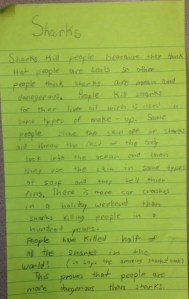 Sharks
Sharks kill people because they think
that people are seals so other
people think sharks are mean and
dangerous. People kill sharks
for their liver oil which is used in
some types of make-up. Some
people shave the skin off of sharks
and throw the rest of the body
back into the ocean and then
they use the skin in some types
of soup and they sell their
fins. There is more car crashes
in a holiday weekend than
sharks killing people in a
hundred years.
People have killed half of
All the sharks in the
world!
This proves that people are
more dangerous than sharks.